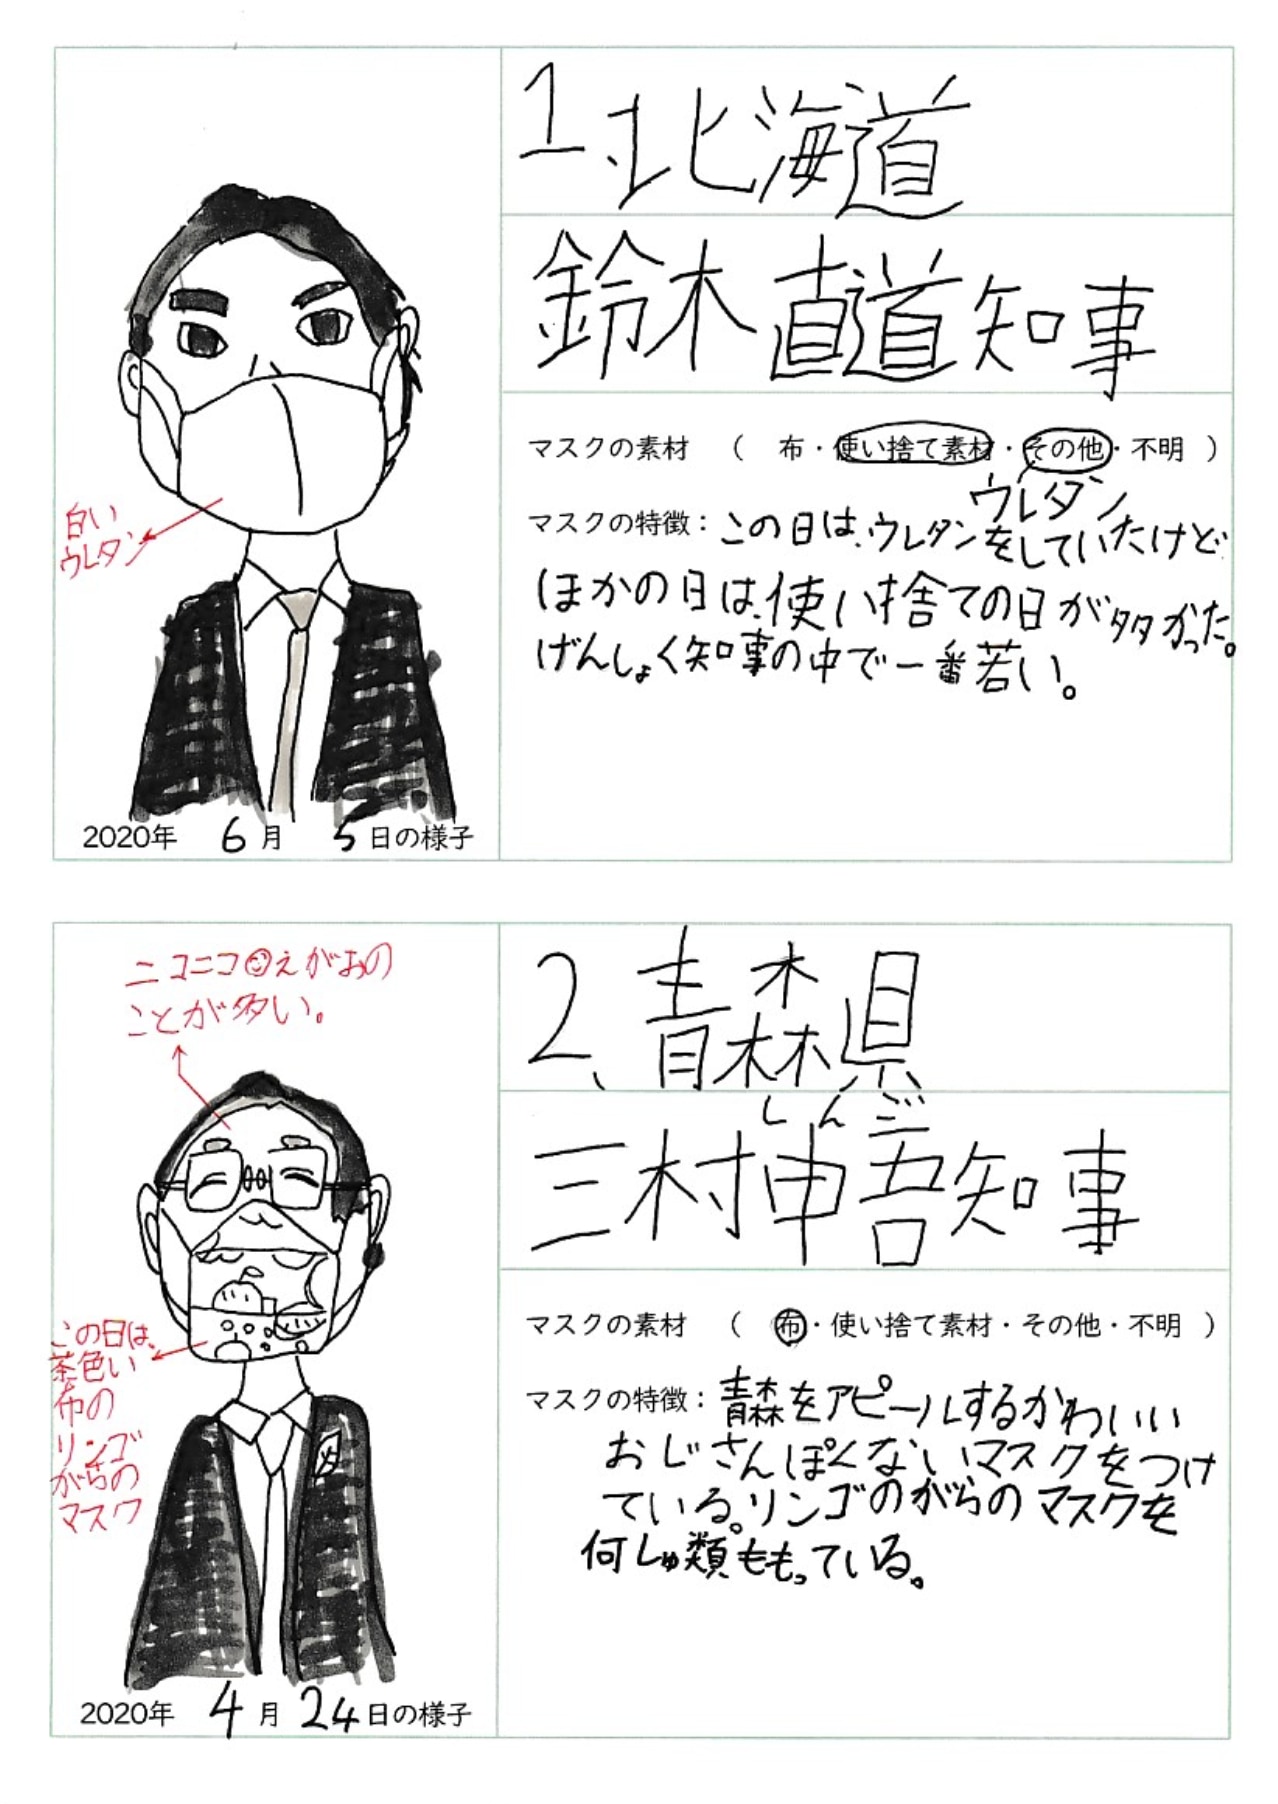 1、北海道
鈴木直道知事
マスクの素材　（　布・使い捨て素材・その他・不明　）
ウレタン
マスクの特徴：この日は、ウレタンをしていたけど
ほかの日は、使い捨ての日が多かった。
げんしょく知事の中で一番若い。
白い
ウレタン
2020年　6月　5日の様子
2、青森県
しんご
三村申吾知事
マスクの素材　（　布・使い捨て素材・その他・不明　）
マスクの特徴：青森をアピールするかわいい
おじさんぽくないマスクをつけ
ている。リンゴのがらのマスクを
何しゅ類ももっている。
ニコニコえがおの
ことが多い。
この日は、
茶色い
布の
リンゴ
がらの
マスク
2020年　4月　24日の様子